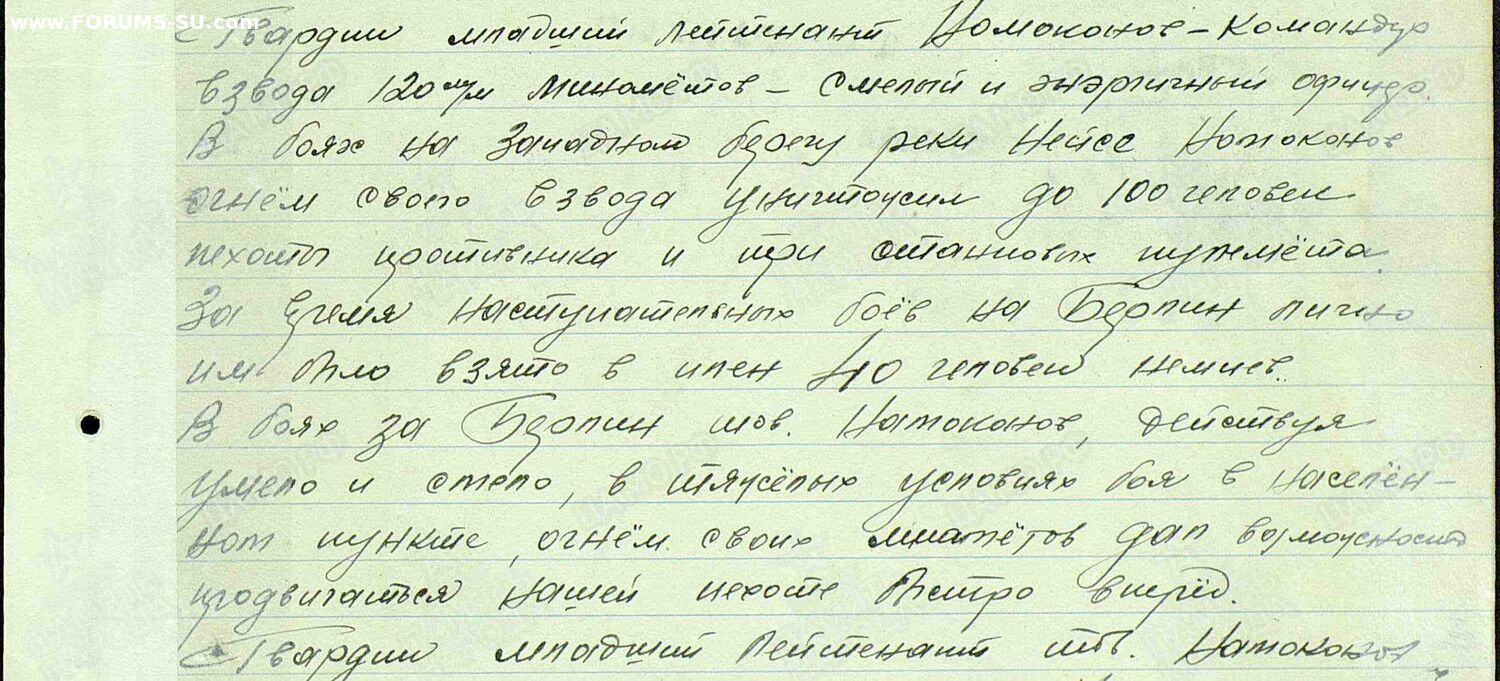 www.FORUMS-SU.com
Гвардии младший лейтенант Номоконов – командир
взвода 120 м/м миномётов – смелый и энэргичный офицер.
В бояж на западном берегу реки Нейсе Номоконов
огнём своего взвода уничтожил до 100 человек
пехоты противника и три станковых пулемёта.
За время наступательных боёв на Берлин лично
им было взято в плен 40 человек немцев.
В боях за Берлин тов. Номоконов, действуя
умело и смело, в тяжёлых условиях боя в населён-
ном пункте, огнём своих миномётов дал возможность
продвигаться нашей пехоте быстро вперёд.
Гвардии младший лейтенант тов. Номоконов